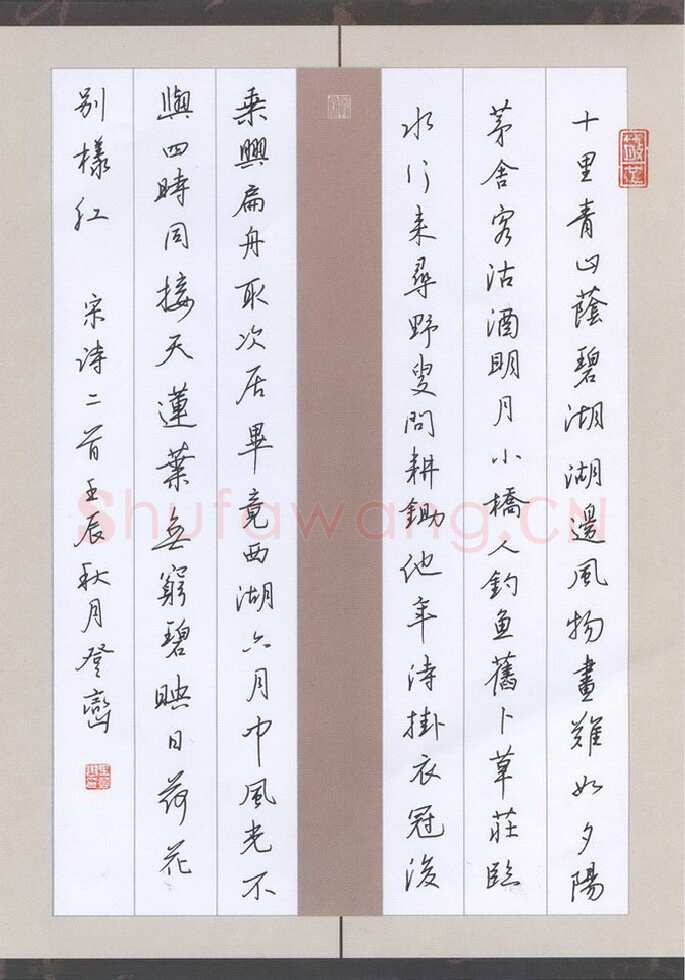 十里青山蔭碧湖湖邊風物畫難如夕陽
茅舍客沽酒明月小橋人釣魚舊卜草莊臨
水行來尋野叟問耕鋤他年待掛衣冠後
乘興扁舟取次居畢竟西湖六月中風光不
與四時同接天蓮葉無窮碧映日荷花
別樣紅 宋詩二首壬辰秋月登巒
Shufawang.CN